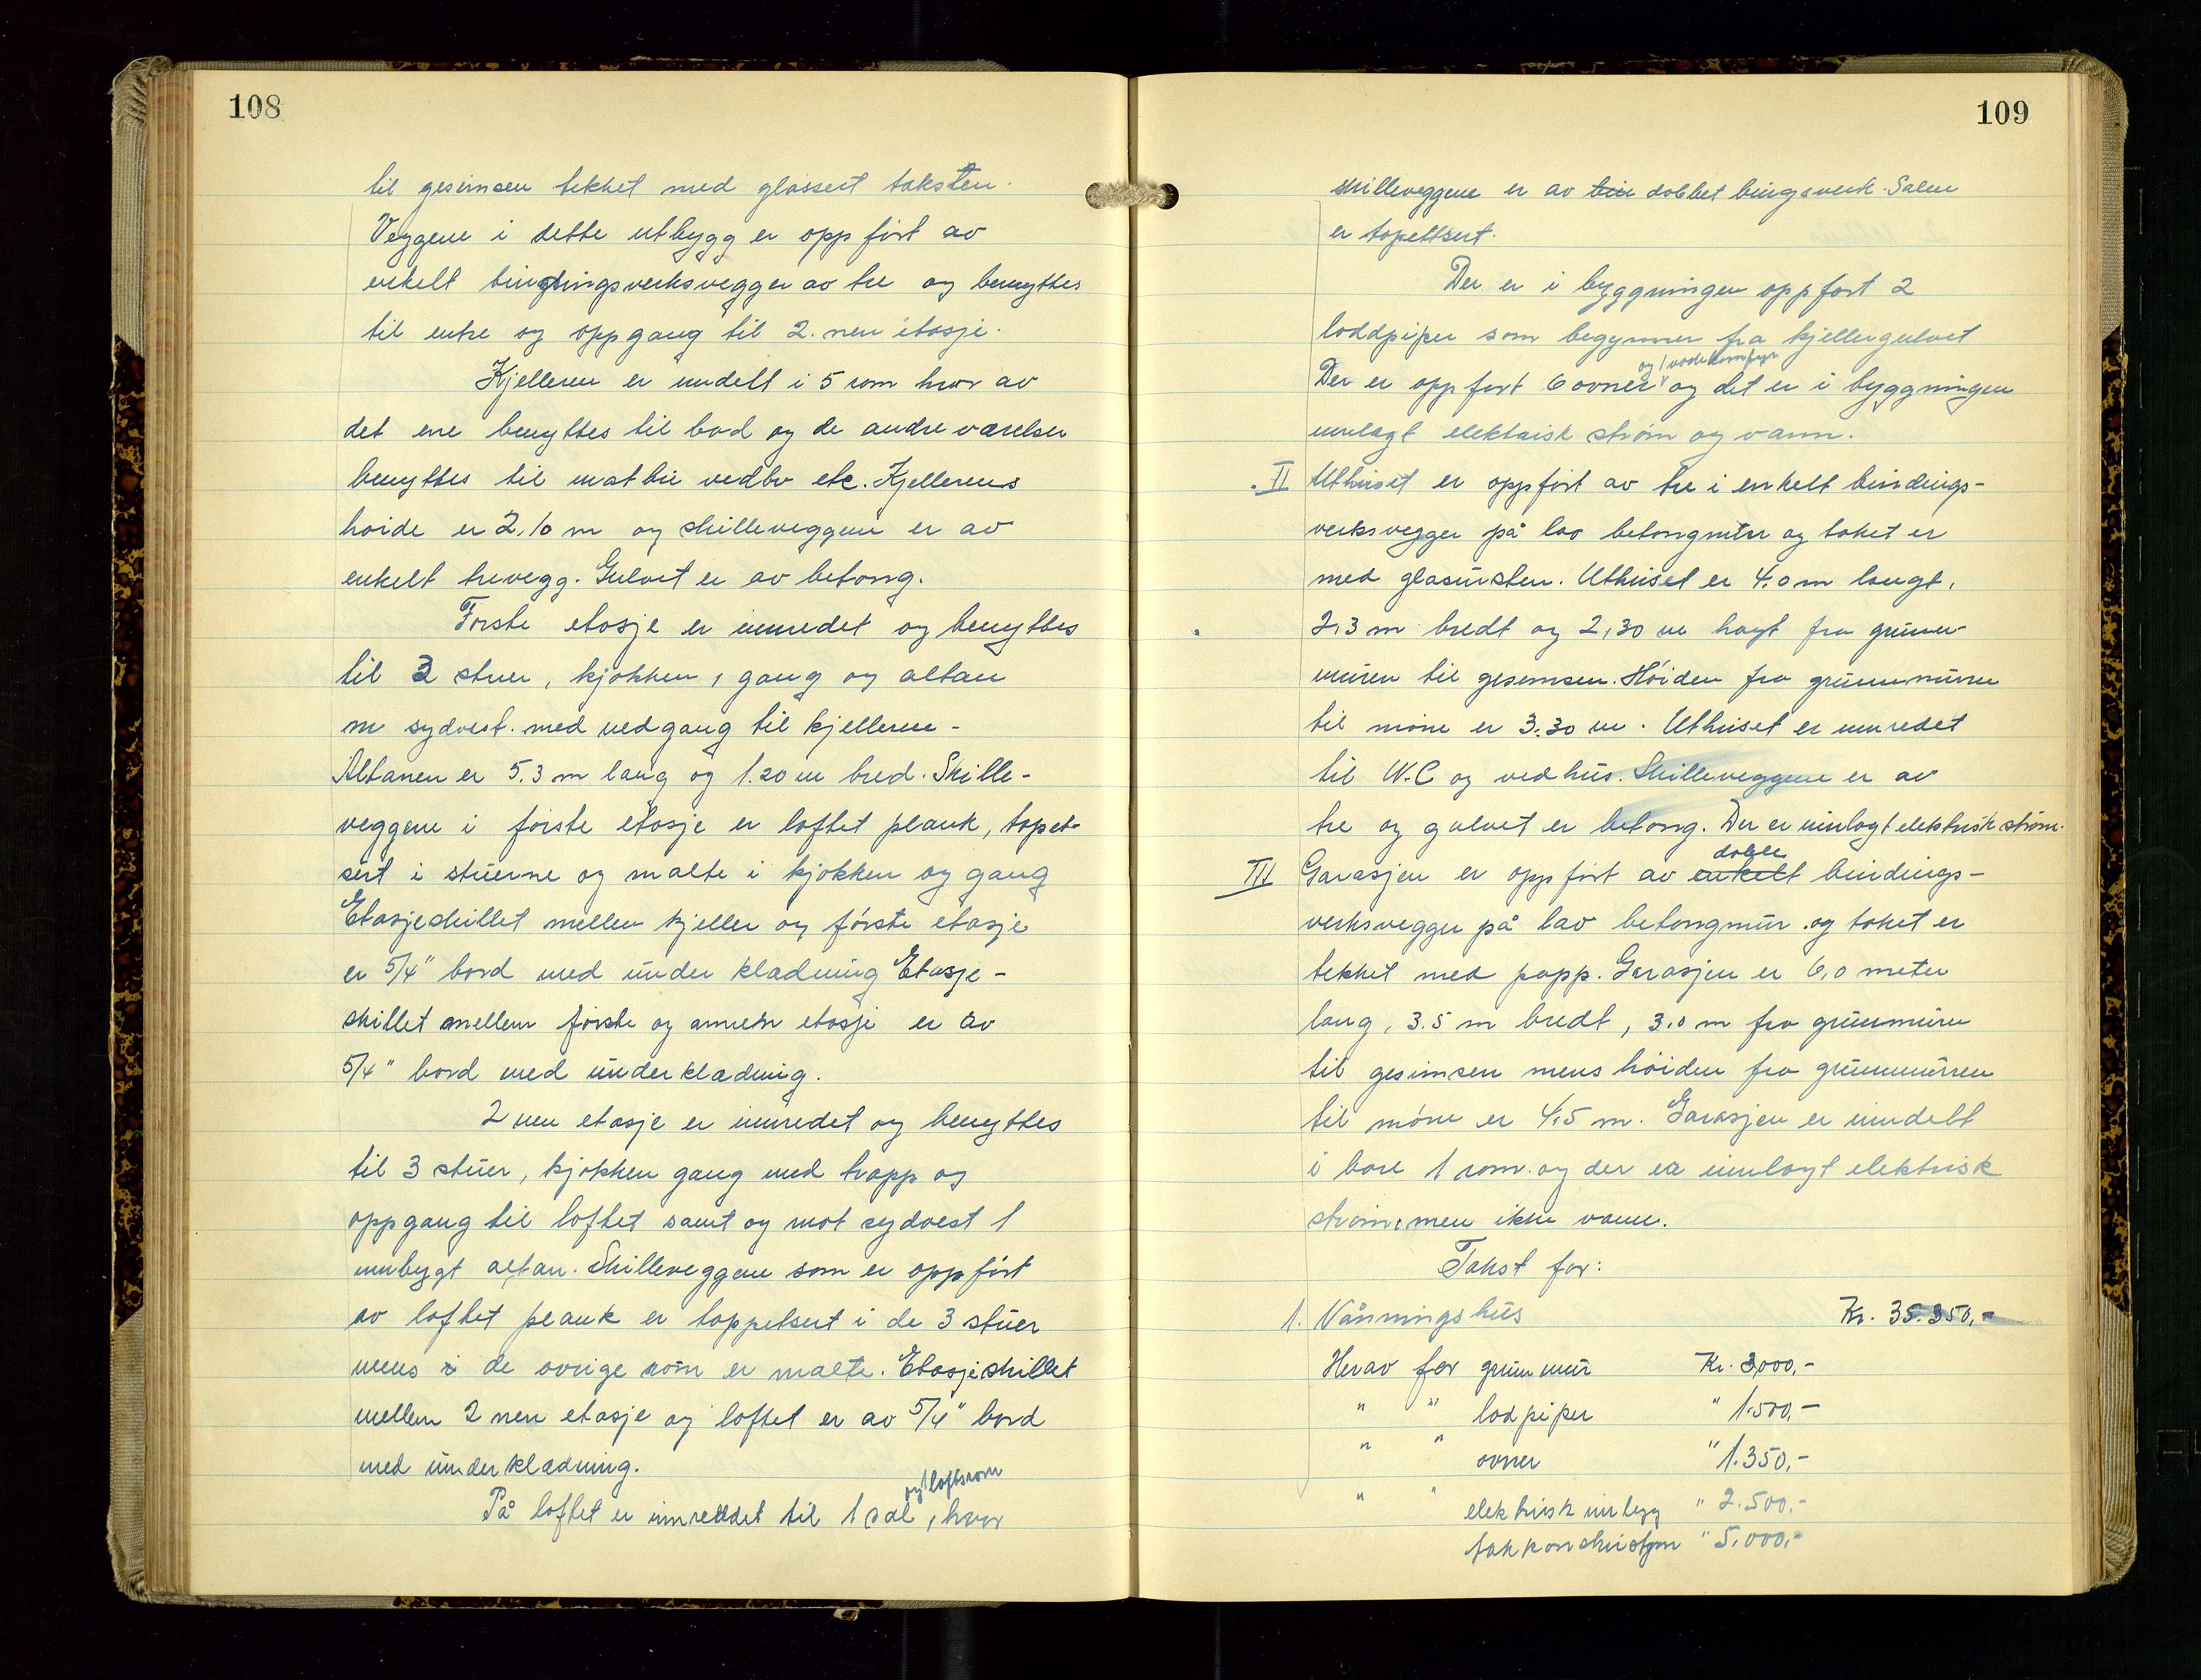 108
til gesimsen tekket med glassert taksten.
Veggene i dette utbygg er oppført av
enkelt bindingsverksvegger av tre og benyttes
til entre og oppgang til 2. nen etasje.
Kjelleren er inndelt i 5 rom hvor av
det ene benyttes til bod og de andre værelser
benyttes til matbu vedbu etc. Kjellerens
høide er 2.10 m og skilleveggene er av
enkelt trevegg. Gulvet er av betong.
Første etasje er innredet og benyttes
til 3 stuer, kjøkken, gang og altan
m sydvest. med nedgang til kjelleren -
Altanen er 5.3 m lang og 1.20 m bred. Skille-
veggene i første etasje er loftet plank, tapet-
sert i stuerne og malte i kjøkken og gang
Etasjeskillet mellem kjeller og første etasje
er 5/4" bord med under kladning Etasje-
skillet mellem første og annen etasje er av
5/4" bord med underkladning.
2 nen etasje er innredet og benyttes
til 3 stuer, kjøkken gang med trapp og
oppgang til loftet samt og mot sydvest 1
innbygt altan. Skilleveggene som er oppført
av loftet plank er tappetsert i de 3 stuer
mens i de øvrige rom er malte. Etasjeskillet
mellem 2 nen etasje og loftet er av 5/4" bord
med underkladning.
og 1 loftsrom
På loftet er innreddet til 1 sal, hvor
109
skilleveggene er av bin dobbet bingsverk. Salen
er tapettsert.
Der er i byggningen oppført 2
loddpiper som begynner fra kjellergulvet
og 1 vaskekomfyr
Der er oppført 6 ovner og det er i byggningen
innlagt elektrisk strøm og vann.
II Uthuset er oppført av tre i enkelt bindings-
verksvegger på lav betongmur og taket er
med glasursten. Uthuset er 4.0 m langt,
2,3 m bredt og 2,30 m høyt fra grunn-
muren til gesemsen. Høiden fra grunnmuren
til møne er 3.30 m. Uthuset er innredet
til W.C og vedhus. Skilleveggene er av
tre og gulvet er betong. Der er innlagt elektrisk strøm.
doble
III Garasjen er oppført av enkelt bindings-
verksvegger på lav betongmur og taket er
tekket med papp. Garasjen er 6,0 meter
lang, 3.5 m bredt, 3.0 m fra grunnmuren
til gesimsen mens høiden fra grunnmuren
til møne er 4,5 m. Garasjen er inndelt
i bare 1 rom og der er innlagt elektrisk
strøm, men ikke vann.
Takst for:
1. Våningshus Kr. 35.350,-
Herav for grunnmur Kr. 3,000,-
" " lodpiper " 1.500,-
" " ovner " 1.350,-
" " elektrisk innlegg " 2.500,-
takkonstruksjon " 5.000,-